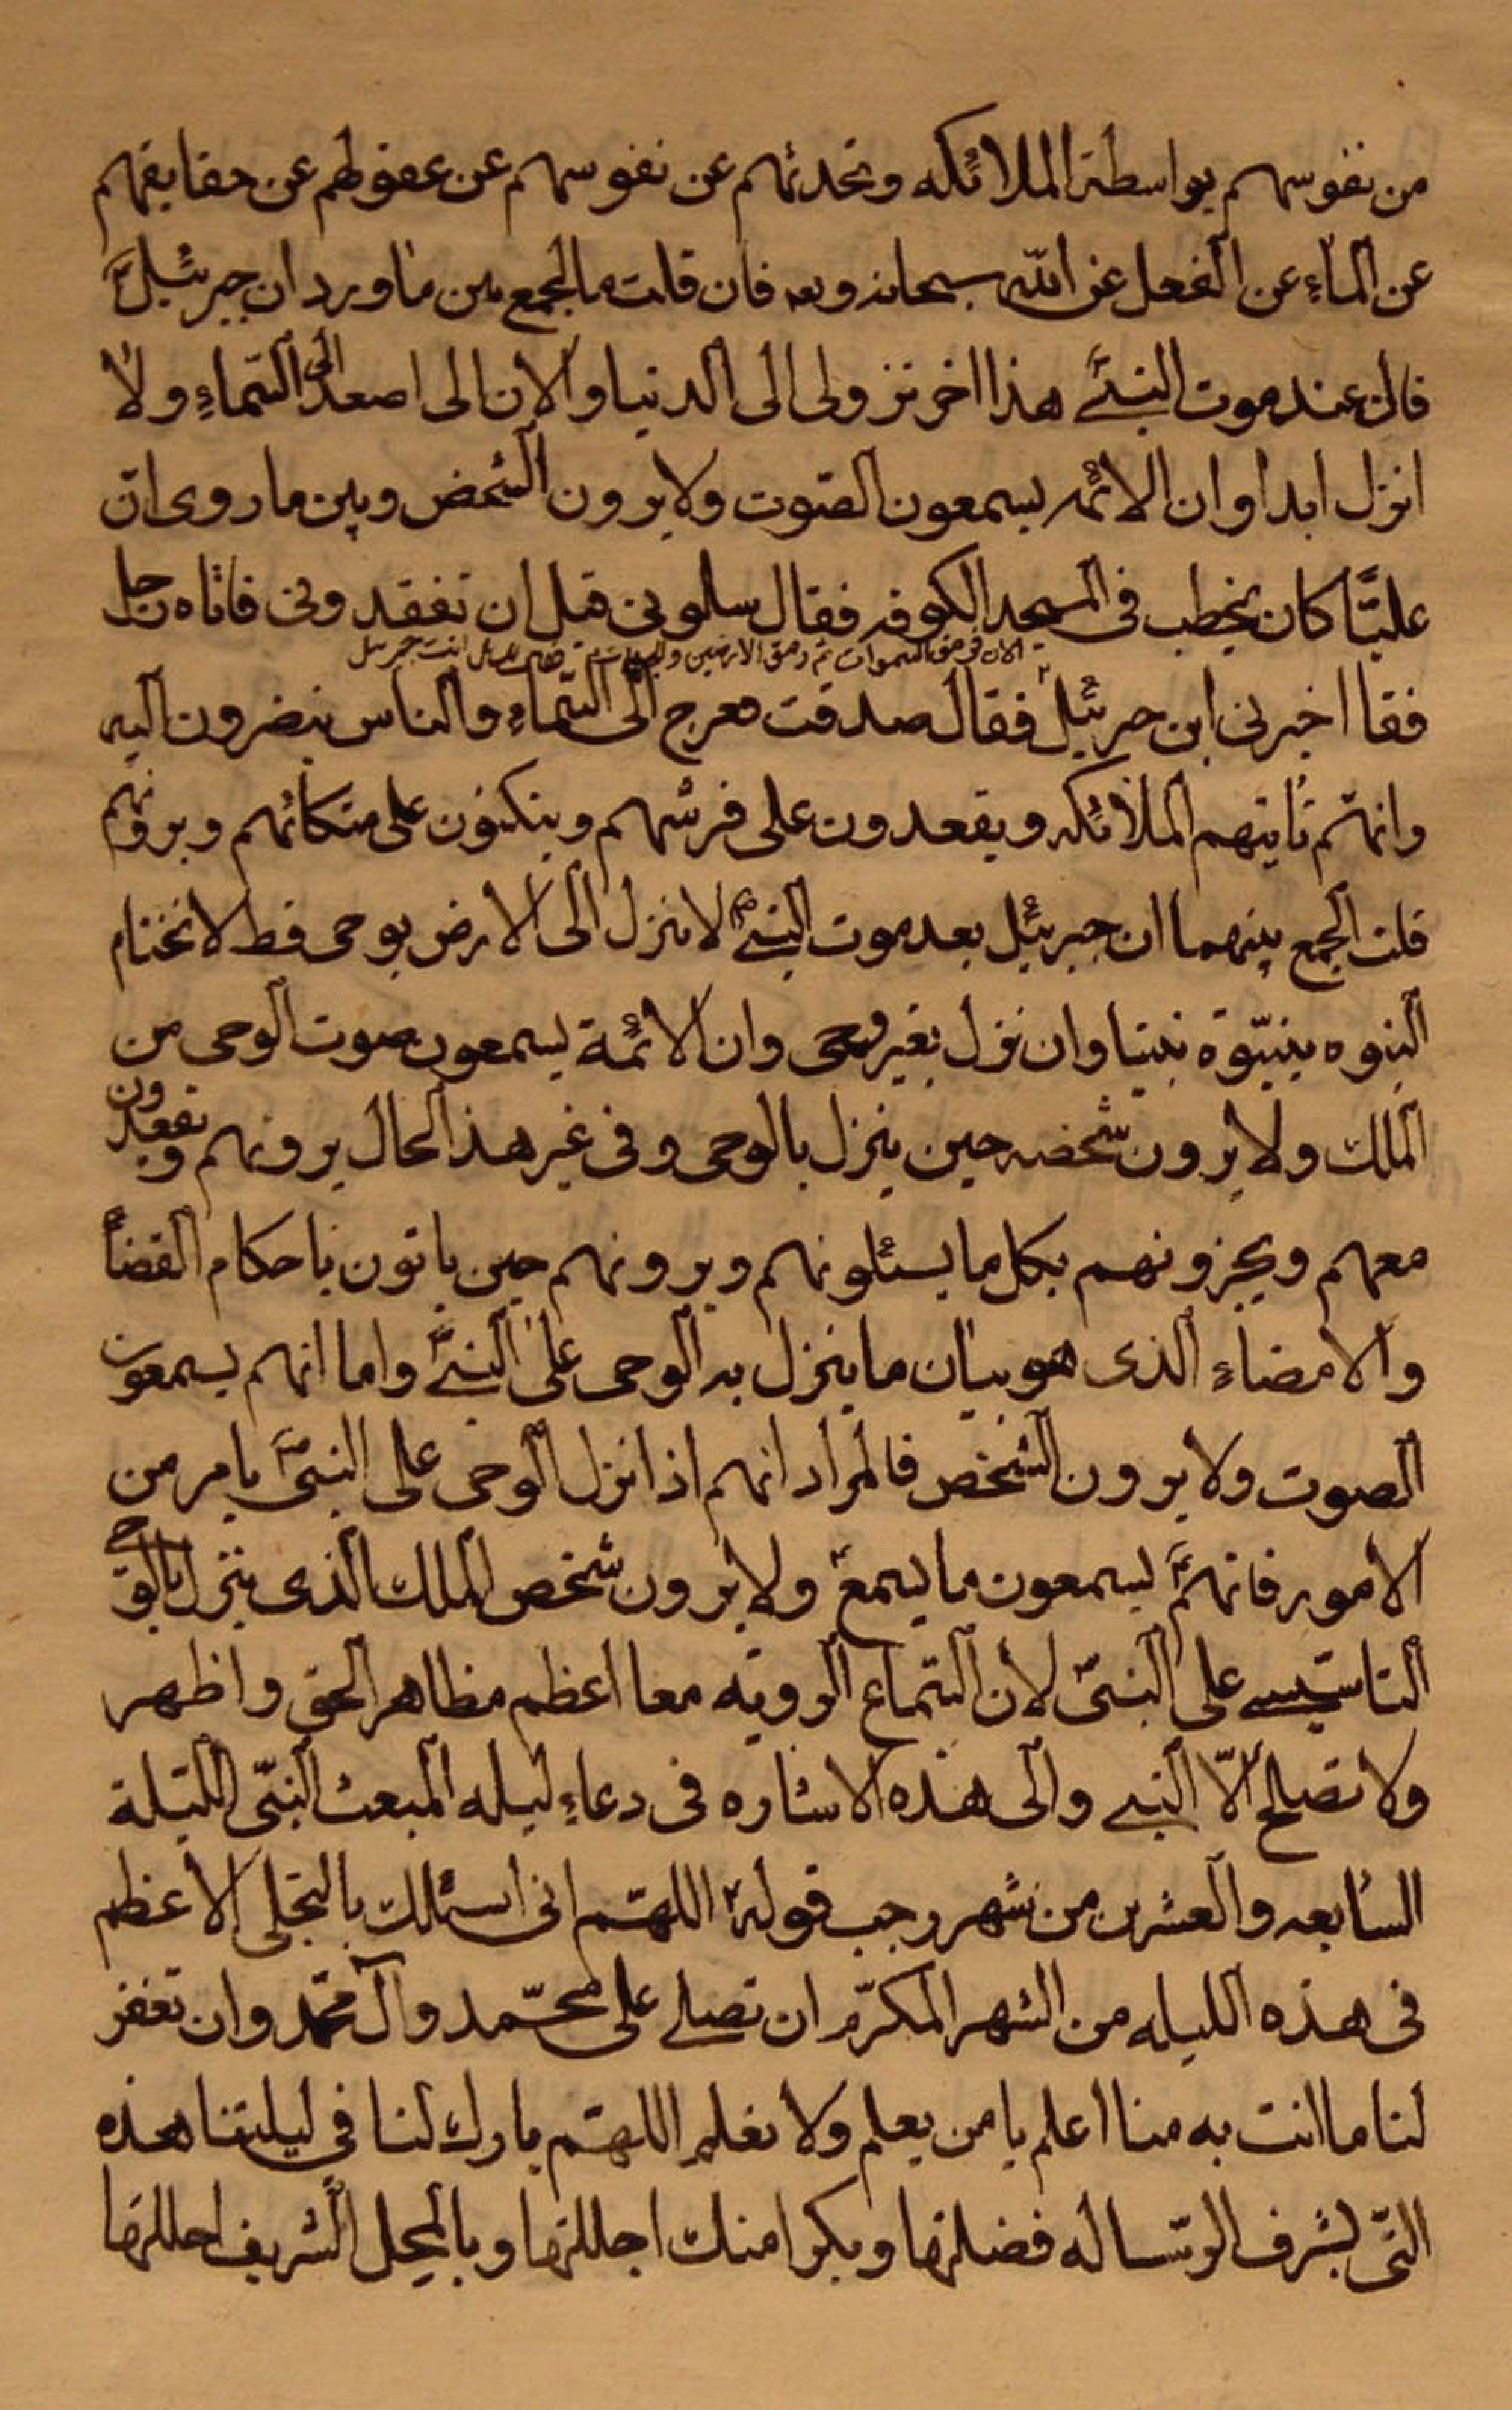 من نفوسهم بواسطة الملائكه وتحدثهم عن نفوسهم عن عقولهم عن حقايقهم
عن الماء عن الفعل عن الله سبحانه وتع فان قلت ما الجمع بين ما ورد ان جبرئيل
قال عند موت النبي هذا اخر نزولى الى الدنيا والان الى اصعد الى السماء ولا
انزل ابدا وان الائمه يسمعون الصوت ولا يرون الشخص وبين ما روى ان
عليّا كان يخطب فى المسجد الكوفه فقال سلونى قبل ان تفقدونى فاتاه رجل
السموات ثم رمق الارضين انت جبرئيل
فقا اخبرنى اين جبرئيل فقال صدقت فعرج الى السّماء والناس ينضرون اليه
وانهم تاتيهم الملائكه ويقعدون على فرشهم ويتكئون على متكائهم ويرونهم
قلت الجمع بينهما ان جبرئيل بعد موت النبي ص لا ينزل الى الارض بوحى قط لاختتام
النبوه بنبوّة نبينا وان نزل بغير وحى وان الائمة يسمعون صوت الوحى من
الملك ولا يرون شخصه حين ينزل بالوحى وفى غير هذ الحال يرونهم ويقعدون
معهم ويخبرونهم بكل ما يسئلونهم ويرونهم حين ياتون باحكام القضا
والامضاء الذى هو بيان ما ينزل به الوحى على النبي واما انهم يسمعون
الصوت ولا يرون الشخص فالمراد انهم اذا نزل الوحى على النبيّ بامر من
الامور فانهم يسمعون ما يسمع ولا يرون شخص الملك الذى ينزل بالوحى
التاسيسى على النبيّ لان السّماع الرويه معا اعظم مظاهر الحق واظهر
ولا تصلح الّا النبي والى هذه الاشاره فى دعاء ليله المبعث النبىّ الليلة
السابعه والعشرين من شهر رجب قوله اللهّم انى اسئلك بالتجلى الاعظم
فى هذه الليله من الشهر المكرّم ان تصلى على محمّد وآل محمّد وان تغفر
لنا ما انت به منا اعلم يا من يعلم ولا نعلم اللهّم بارك لنا فى ليلتنا هذه
التّى بشرف الرّساله فضلتها وبكرامتك اجللتها وبالمحل الشريف احللتها